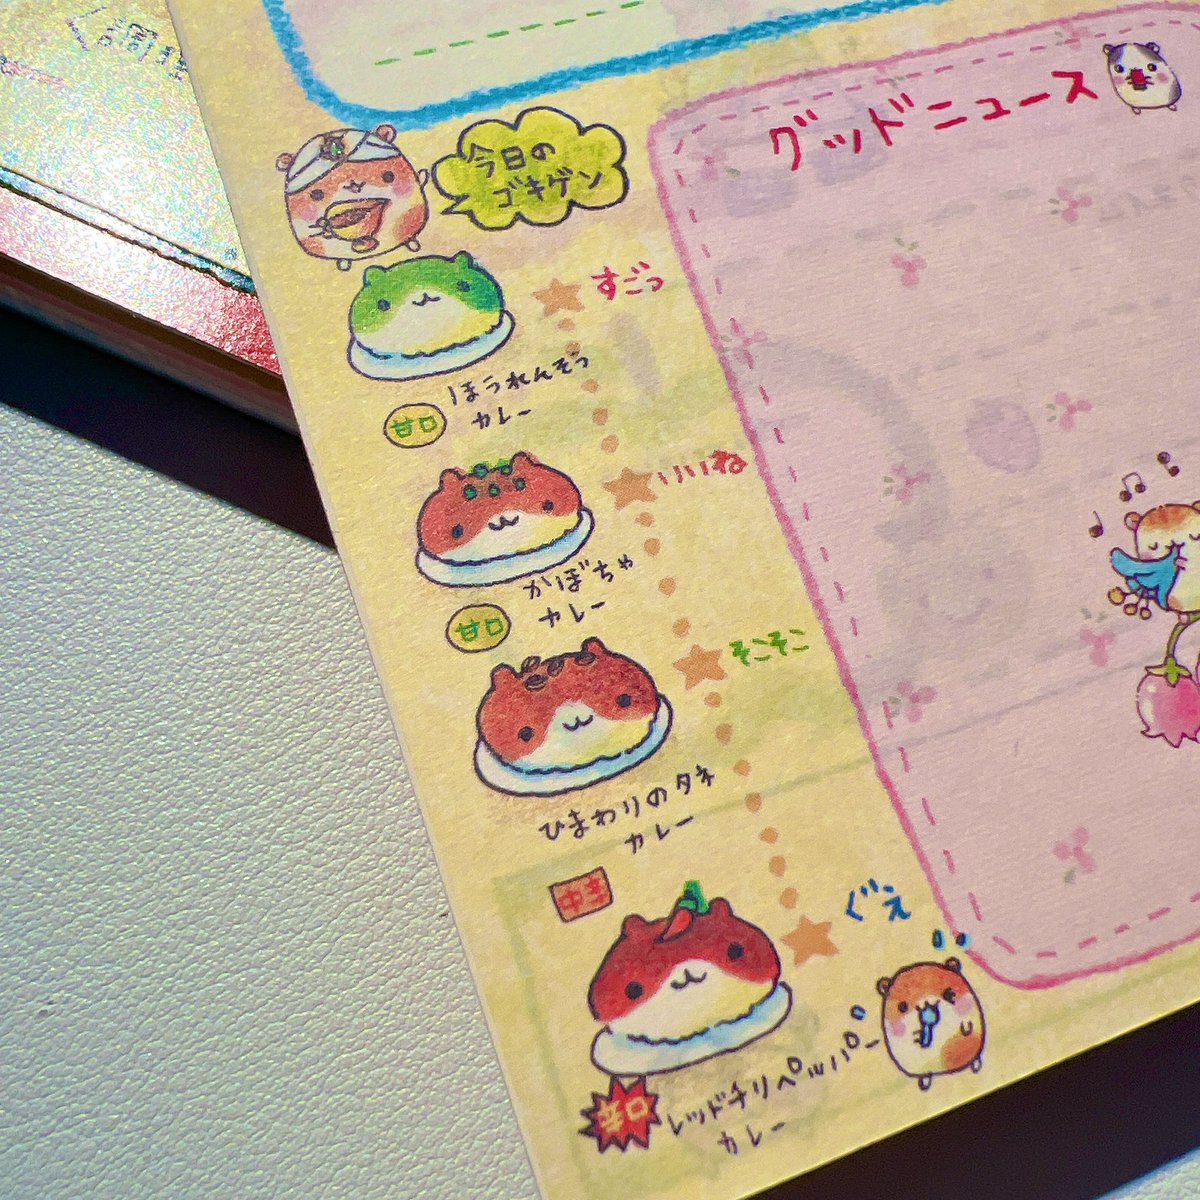 グッドニュース
今日の
ゴキゲン
すごっ
ほうれんそう
カレー
甘口
いいね
かぼちゃ
カレー
甘口
そこそこ
ひまわりのタネ
カレー
中辛
ぐえ
レッドチリペッパー
カレー
辛口